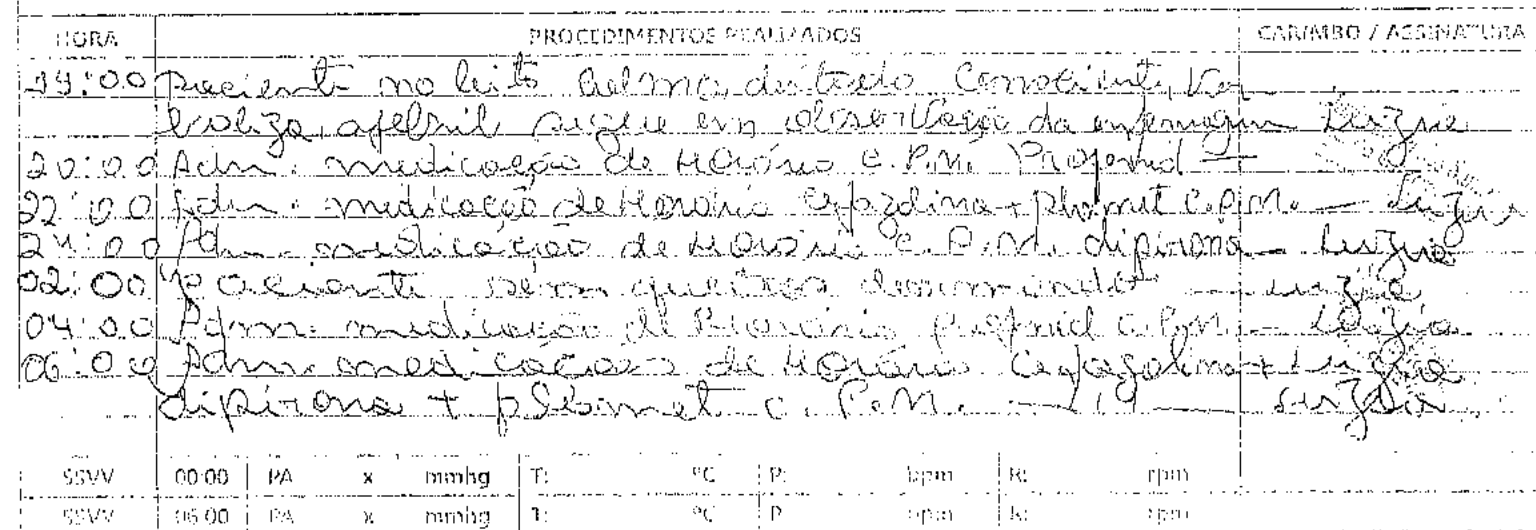 HORA PROCEDIMENTOS REALIZADOS CARIMBO / ASSINATURA
19:00 Paciente no leito calmo, deitado consciente, ver
baliza, afebril segue em observação da enfermagem Luzia
20:00 Adm. medicação de Horário C.P.M. Profenid —
22:00 Adm. medicação de Horário + Plamet C.P.M. — Luzia
24:00 Adm. medicação de Horário C.P.M. dipirona — Luzia
02:00 Paciente sem queixas dormindo — Luzia
04:00 Adm. medicação de Horário Profenid C.P.M. — Luzia
06:00 Adm. medicações de Horário Cefazolina + Luzia
dipirona + plamet C.P.M. — Luzia
SSVV 00:00 PA x mmhg T: ºC P: bpm R: rpm
SSVV 06:00 PA x mmhg T: ºC P bpm R: rpm